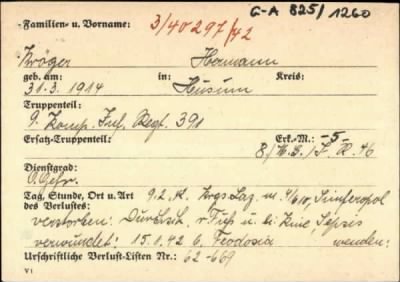 G-A 825/1260
Familien- u. Vorname: 3/40297/42
Kröger Hermann
geb. am: in: Kreis:
31.3.1914 Husum
Truppenteil:
9. Komp. Inf. Regt. 391
Ersatz-Truppenteil: Erk.-M.: -5-
8./ /I. R. 46
Dienstgrad:
O.Gefr.
Tag, Stunde, Ort u. Art 9.2. Krgs Laz. 4/610, Simferopol
des Verlustes:
verstorben: Durchsch. r. Fuß u. li. Knie, Sepsis
verwundet: 15.1.42 b. Feodosia wenden!
Urschriftliche Verlust-Listen Nr.: 62-669
V I